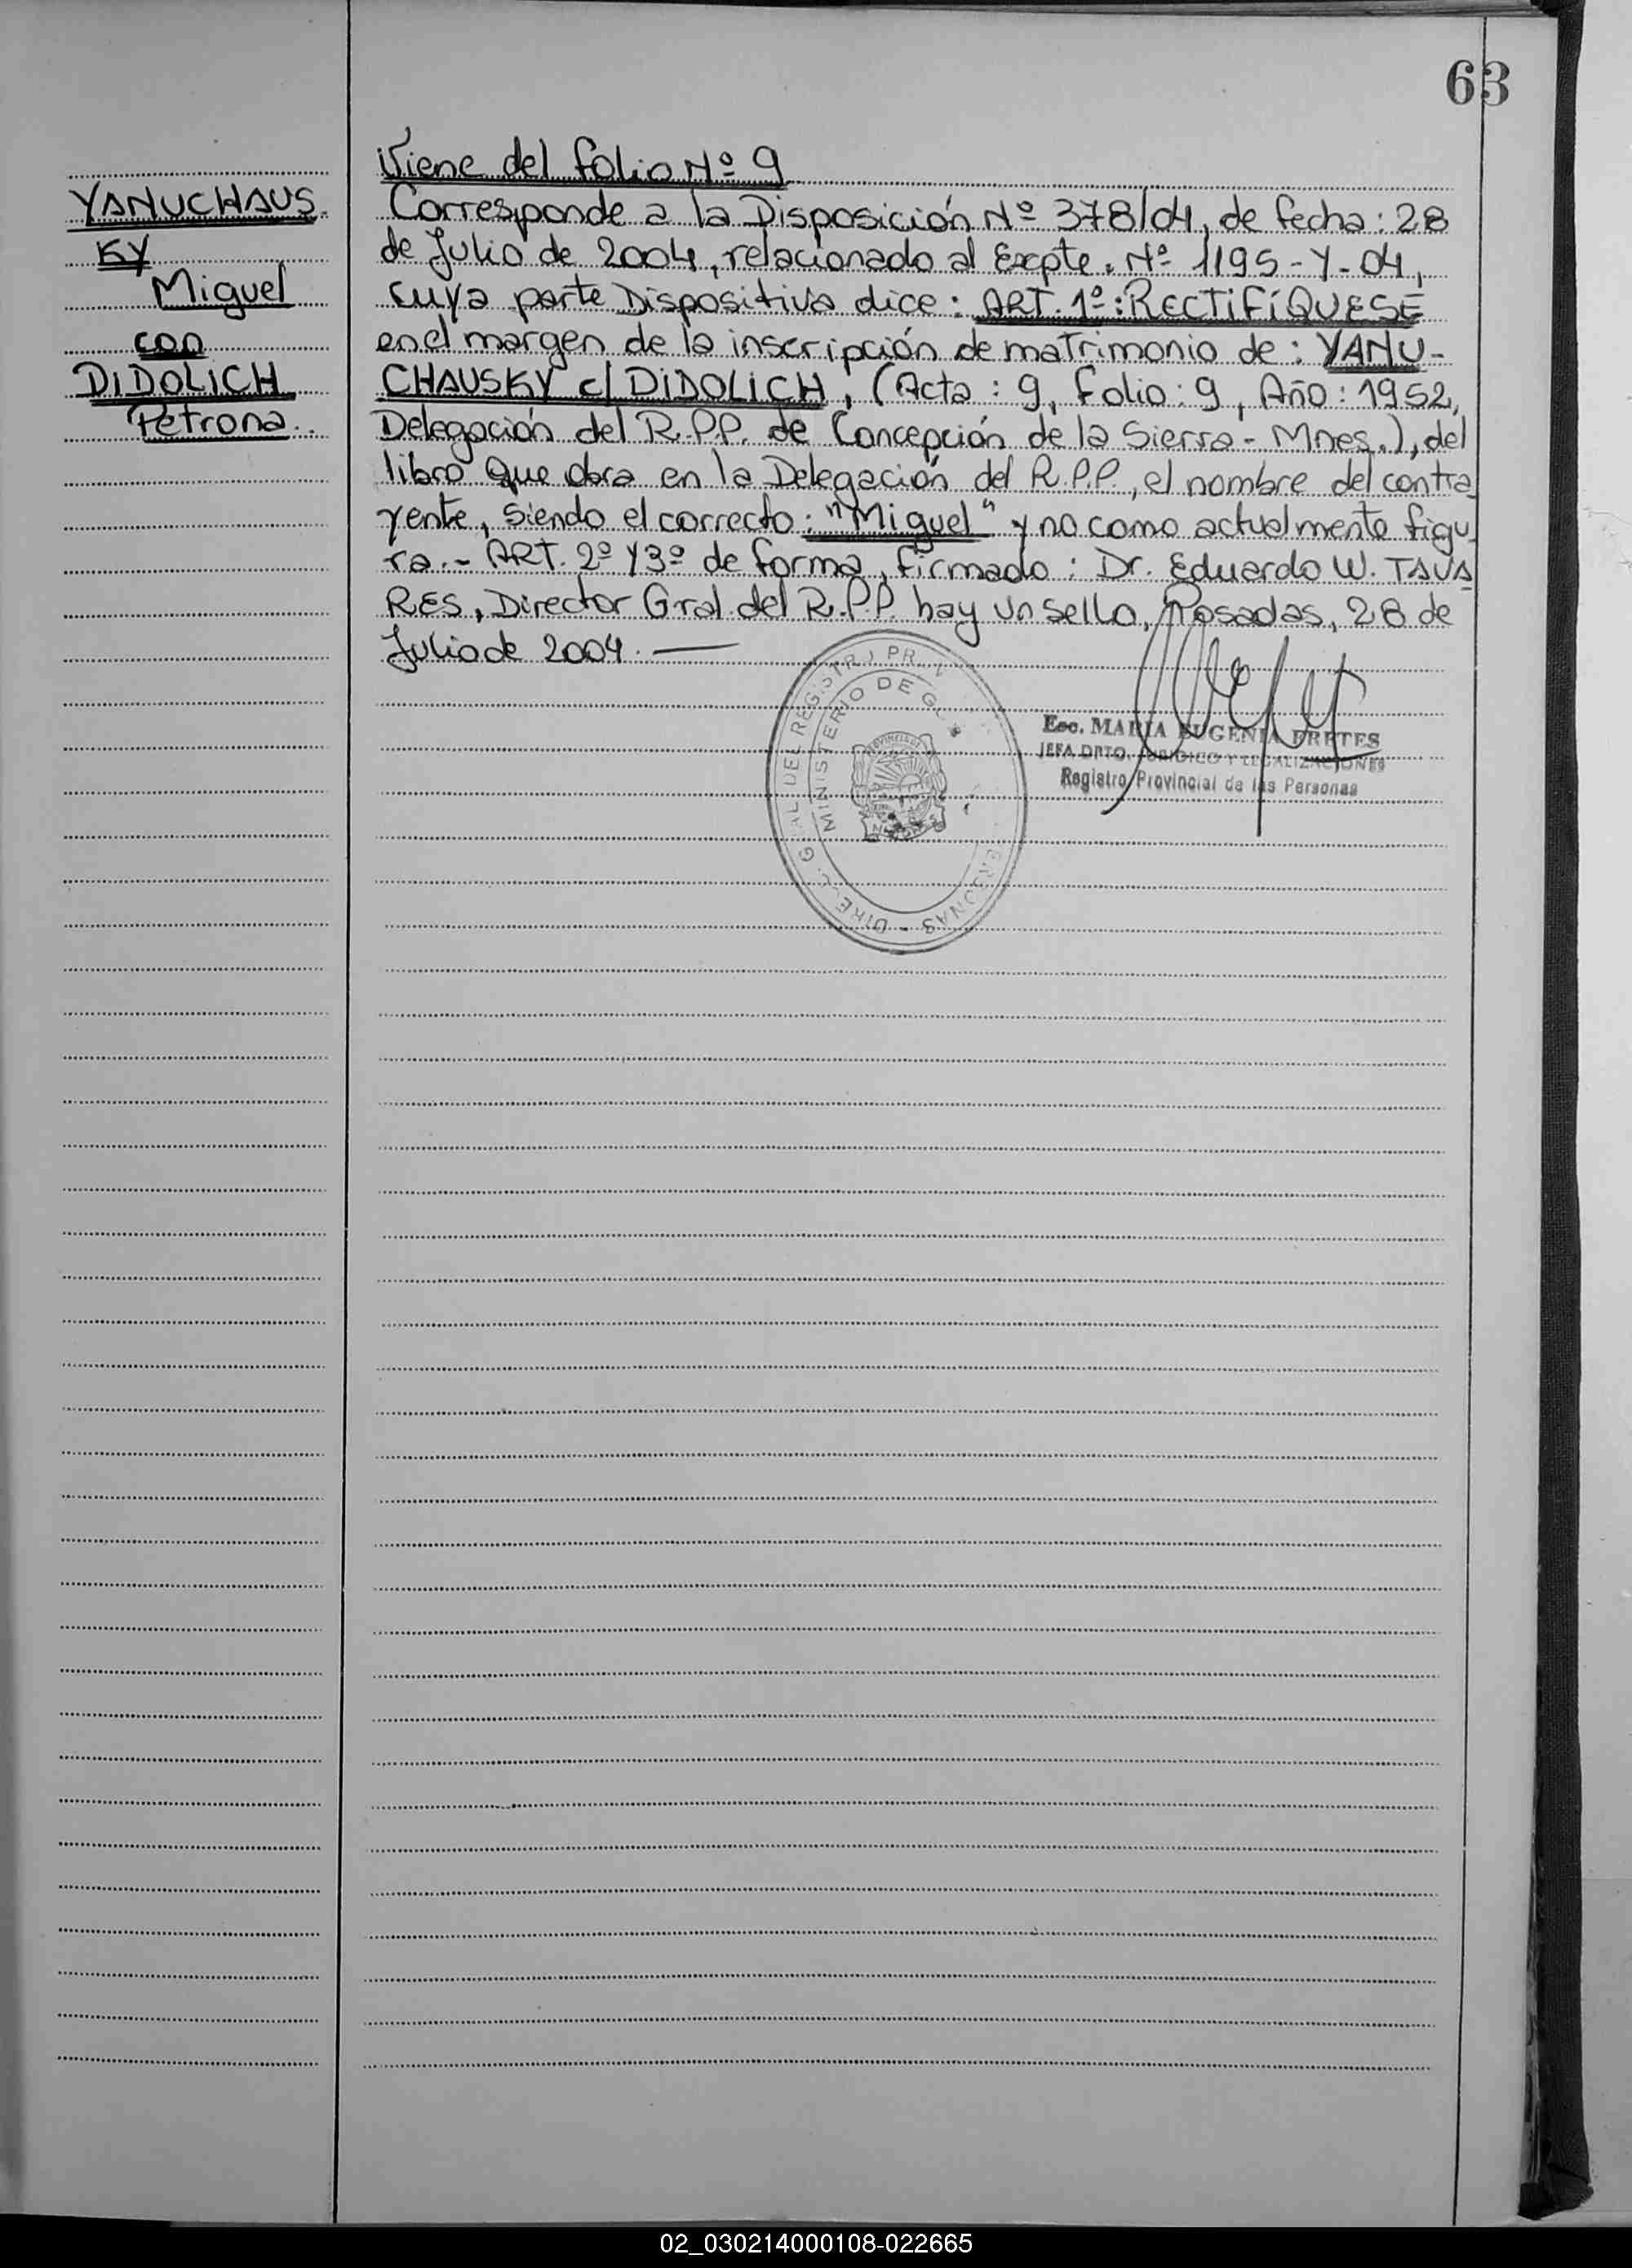 63
YANUCHAUS-
KY
Miguel
con
DIDOLICH
Petrona
Viene del folio Nº 9
Corresponde a la Disposición Nº 378/04, de fecha: 28
de Julio de 2004, relacionado al Expte. Nº 1195-Y-04,
cuya parte Dispositiva dice: ART. 1º: RECTIFÍQUESE
en el margen de la inscripción de matrimonio de: YANU-
CHAUSKY c/ DIDOLICH, (Acta: 9, Folio: 9, Año: 1952,
Delegación del R.P.P. de Concepción de la Sierra- Mnes.), del
libro que obra en la Delegación del R.P.P., el nombre del contra
yente, siendo el correcto: "Miguel" y no como actualmente figu
ra.- ART. 2º Y 3º de forma, firmado: Dr. Eduardo W. TAVA
RES, Director Gral. del R.P.P. hay un sello, Posadas, 28 de
Julio de 2004.
Esc. MARIA EUGENIA FRETES
JEFA DPTO. JURIDICO Y LEGALIZACIONES
Registro Provincial de las Personas
MINISTERIO DE
02_030214000108-022665